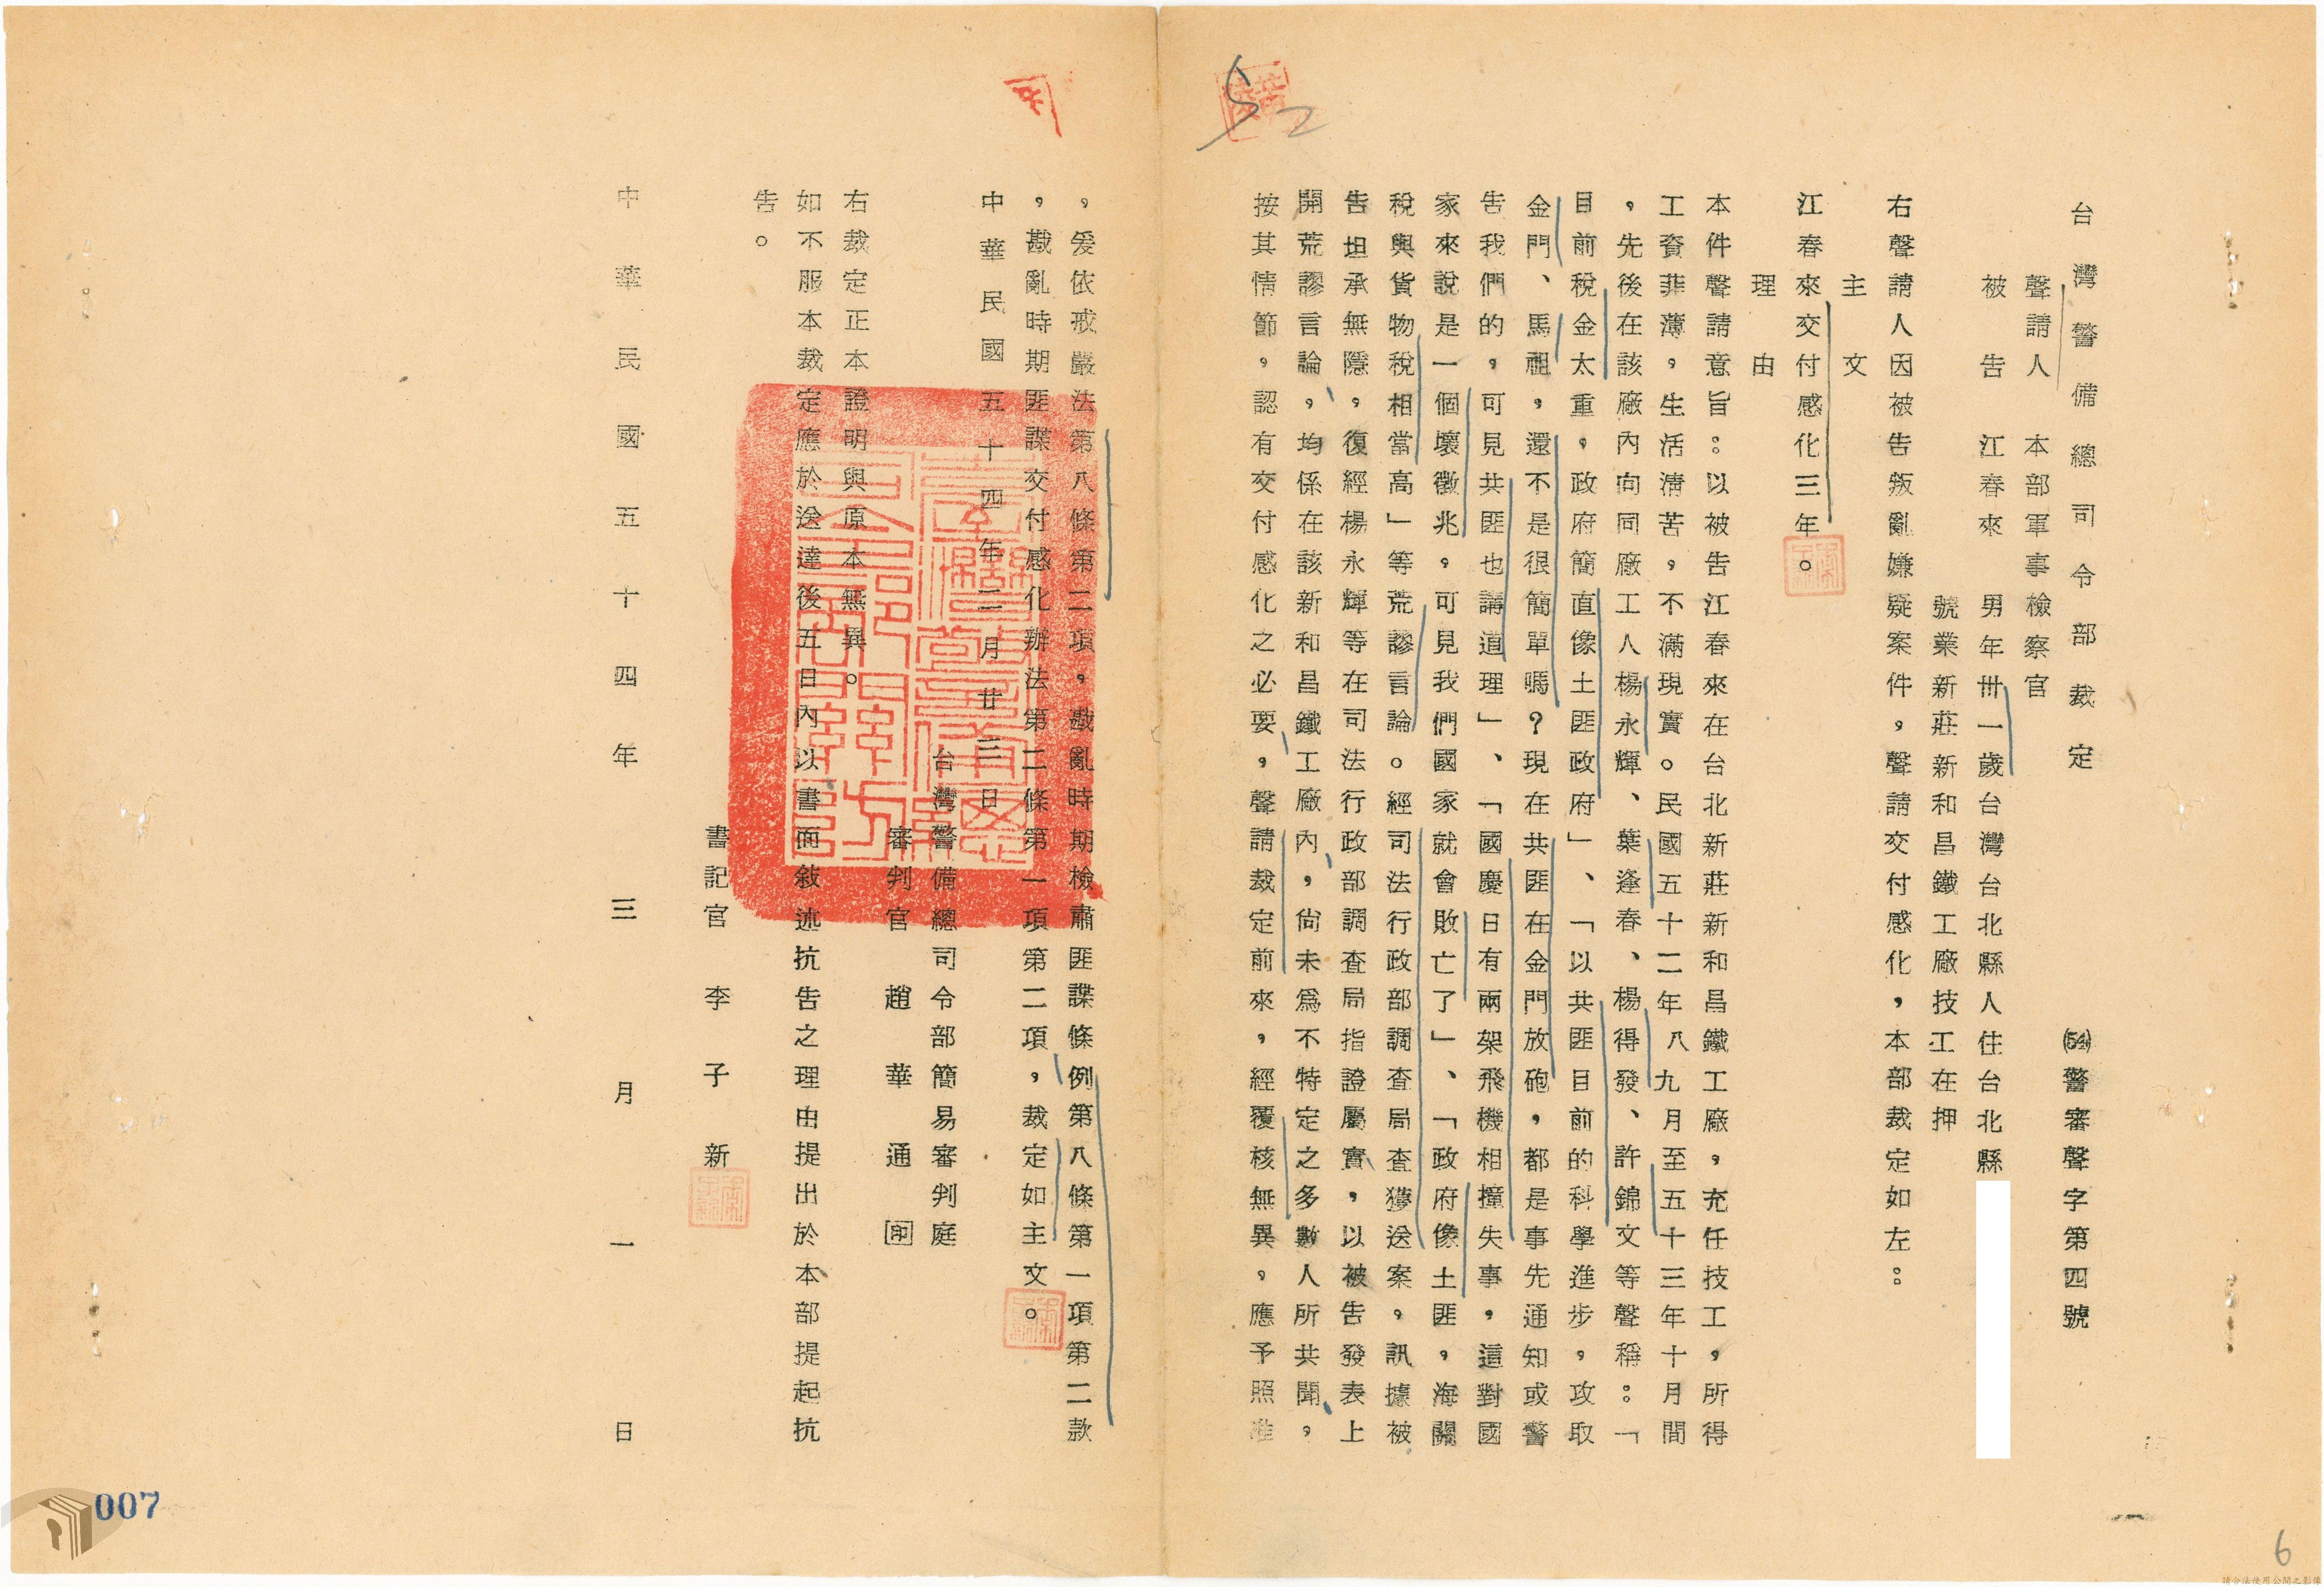 台灣警備總司令部裁定
(54)警審聲字第四號
聲請人　本部軍事檢察官
被告　江春來　男年卅一歲台灣台北縣人住台北縣
號業新莊新和昌鐵工廠技工在押
右聲請人因被告叛亂嫌疑案件，聲請交付感化，本部裁定如左：
主文
江春來交付感化三年。
理由
本件聲請意旨：以被告江春來在台北新莊新和昌鐵工廠，充任技工，所得
工資菲薄，生活清苦，不滿現實。民國五十二年八九月至五十三年十月間
，先後在該廠內向同廠工人楊永輝、葉逢春、楊得發、許錦文等聲稱：「
目前稅金太重，政府簡直像土匪政府」、「以共匪目前的科學進步，攻取
金門、馬祖，還不是很簡單嗎？現在共匪在金門放砲，都是事先通知或警
告我們的，可見共匪也講道理」、「國慶日有兩架飛機相撞失事，這對國
家來說是一個壞徵兆，可見我們國家就會敗亡了」、「政府像土匪，海關
稅與貨物稅相當高」等荒謬言論。經司法行政部調查局查獲送案，訊據被
告坦承無隱，復經楊永輝等在司法行政部調查局指證屬實，以被告發表上
開荒謬言論，均係在該新和昌鐵工廠內，尚未為不特定之多數人所共聞，
按其情節，認有交付感化之必要，聲請裁定前來，經覆核無異，應予照准
，爰依戒嚴法第八條第二項，戡亂時期檢肅匪諜條例第八條第一項第二款
，戡亂時期匪諜交付感化辦法第二條第一項第二項，裁定如主文。
中華民國五十四年二月廿三日
台灣警備總司令部簡易審判庭
審判官　趙華通　印
右裁定正本證明與原本無異。
如不服本裁定應於送達後五日內以書面敘述抗告之理由提出於本部提起抗
告。
書記官　李子新
中華民國五十四年三月一日
007
6
52